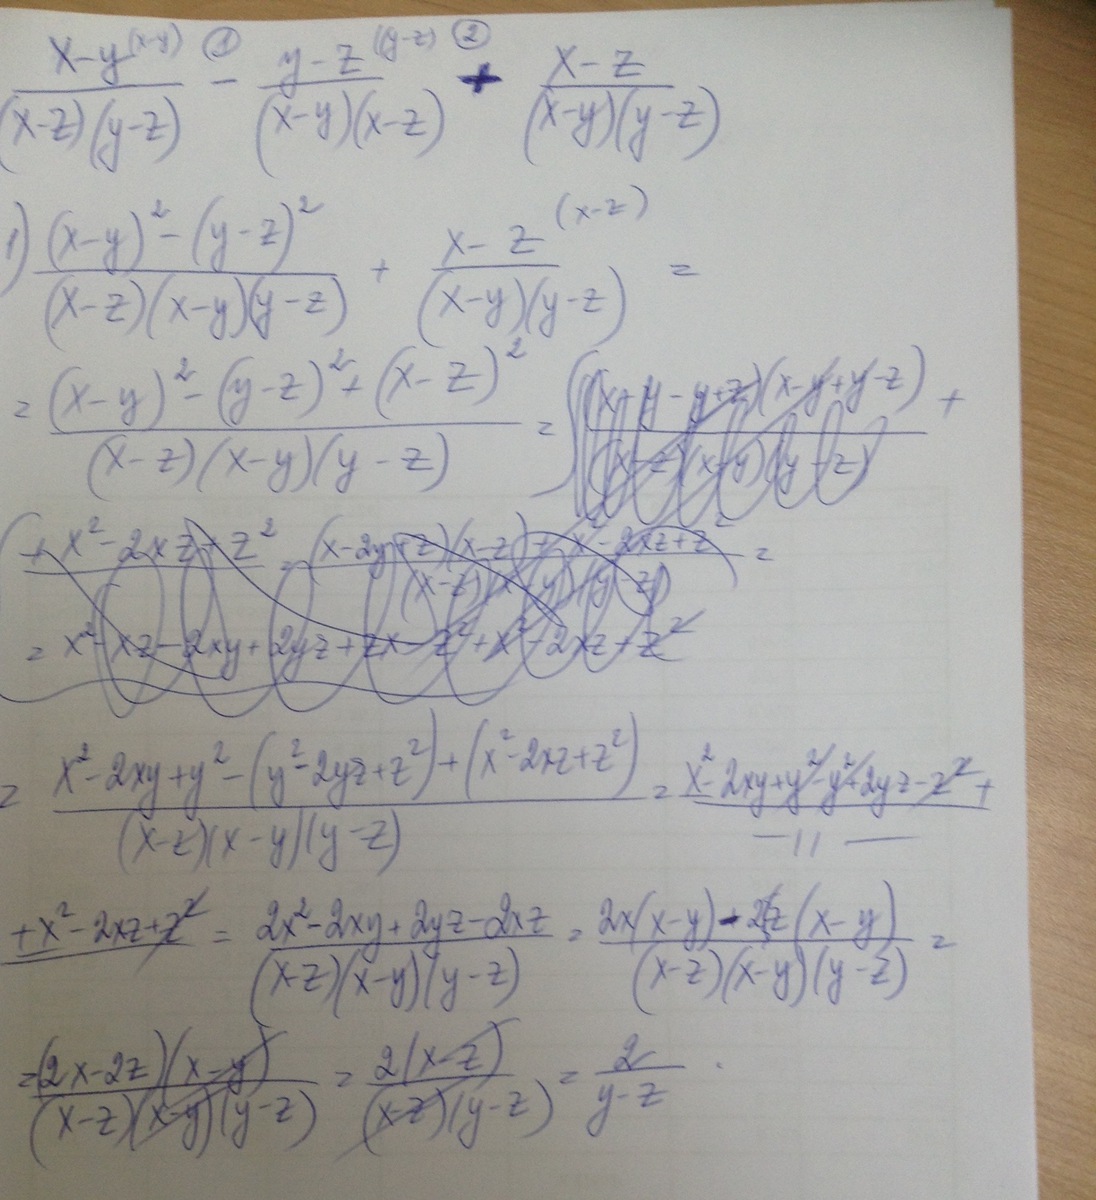 x-y^(x-y) ① / (x-z)(y-z) - y-z^(y-z) ② / (x-y)(x-z) + x-z / (x-y)(y-z)
1) (x-y)²-(y-z)² / (x-z)(x-y)(y-z) + x-z^(x-z) / (x-y)(y-z) =
= (x-y)²-(y-z)²+(x-z)² / (x-z)(x-y)(y-z) =
= x²-2xy+y²-(y²-2yz+z²)+(x²-2xz+z²) / (x-z)(x-y)(y-z) = x²-2xy+y²-y²+2yz-z²+ / —11—
+x²-2xz+z² = 2x²-2xy+2yz-2xz / (x-z)(x-y)(y-z) = 2x(x-y)-2z(x-y) / (x-z)(x-y)(y-z) =
= (2x-2z)(x-y) / (x-z)(x-y)(y-z) = 2(x-z) / (x-z)(y-z) = 2 / y-z .